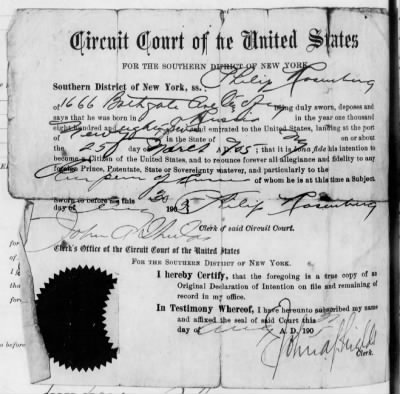 Circuit Court of he United States
FOR THE SOUTHERN DISTRICT OF NEW YORK.
Southern District of New York, ss. Philip Rosenberg
of 1666 Bathgate Ave being duly sworn, deposes and
says that he was born in Russia in the year one thousand
eight hundred and and emirated to the United States, landing at the port
of New York in the State of on or about
the 25 day March 1905; that it is bona fide his intention to
become a Citizen of the United States, and to renounce forever all allegiance and fidelity to any
foreign Prince, Potentate, State or Sovereignty whatever, and particularly to the
Emperor of Russia of whom he is at this time a Subject.
Sworn to before me this 20 Philip Rosenberg
day of 190
John A Shields Clerk of said Circuit Court.
Clerk's Office of the Circuit Court of the United States
FOR THE SOUTHERN DISTRICT OF NEW YORK.
I hereby Certify, that the foregoing is a true copy of an
Original Declaration of Intention on file and remaining of
record in my office.
In Testimony Whereof, I have hereunto subscribed my name
and affixed the seal of said Court this
day of A. D. 190
John A Shields
Clerk.